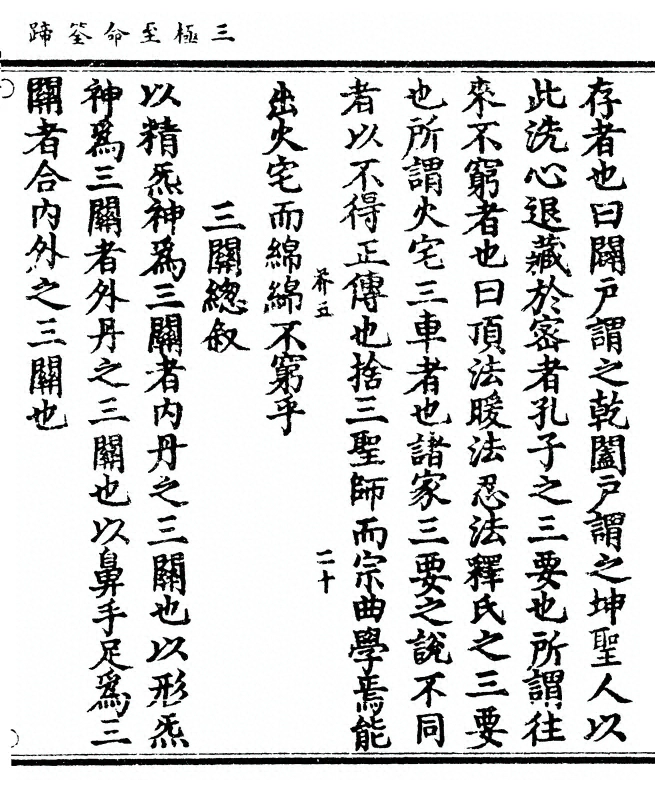 三極至命筌蹄
存者也曰闢戶謂之乾闔戶謂之坤聖人以
此洗心退藏於密者孔子之三要也所謂往
來不窮者也曰頂法暖法忍法釋氏之三要
也所謂火宅三車者也諸家三要之說不同
者以不得正傳也捨三聖師而宗曲學焉能
芥五
二十
出火宅而綿綿不窮乎
三關總叙
以精炁神爲三關者內丹之三關也以形炁
神爲三關者外丹之三關也以鼻手足爲三
關者合內外之三關也